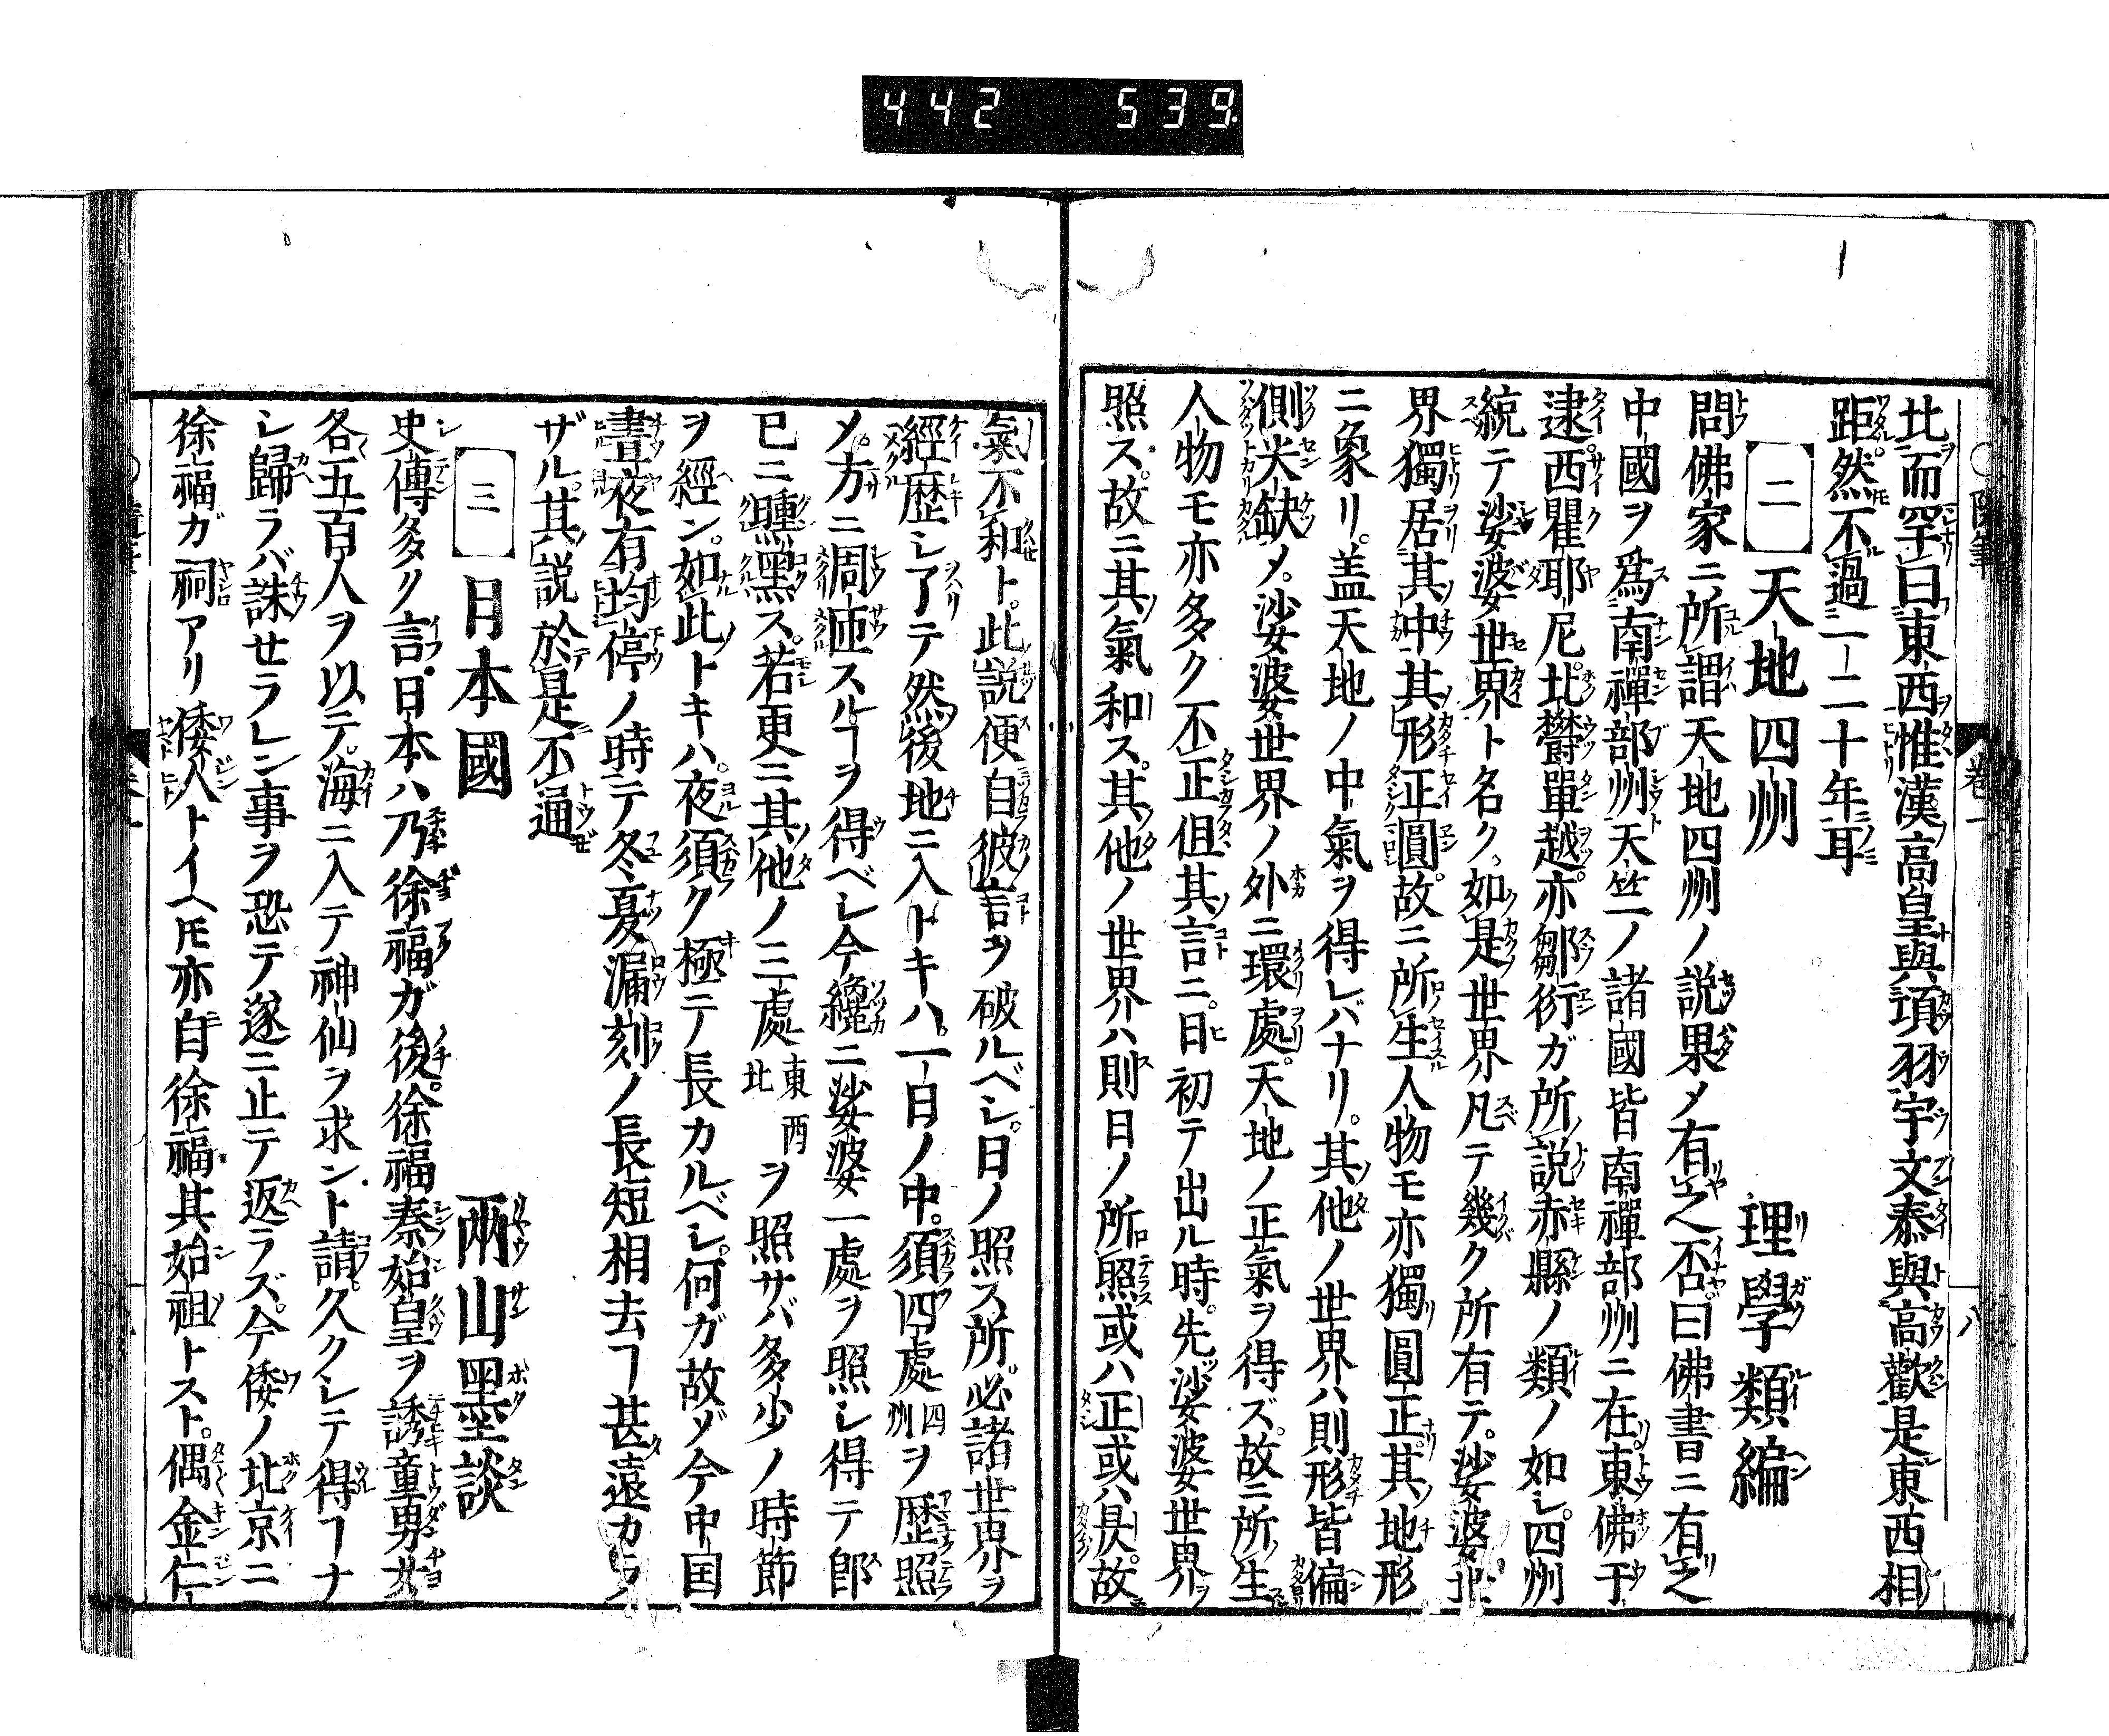 442 539.
北而罕曰東西惟漢高皇與項羽宇文泰與高歡是東西相
距然不過一二十年耳
二 天地四州 理學類編
問佛家ニ所謂天地四州ノ說果メ有之否曰佛書ニ有之
中國ヲ爲南禪部州天竺ノ諸國皆南禪部州ニ在東佛于
逮西瞿耶尼北欝單越亦鄒衍ガ所說赤縣ノ類ノ如シ四州
統テ娑婆世界ト名ク如是世界凡テ幾ク所有テ娑婆世
界獨居其中其形正圓故ニ所生人物モ亦獨圓正其地形
ニ象リ盖天地ノ中氣ヲ得レバナリ其他ノ世界ハ則形皆偏
側尖缺メ沙婆世界ノ外ニ環處天地ノ正氣ヲ得ズ故ニ所生
人物モ亦多ク不正但其言ニ日初テ出ル時先娑婆世界ヲ
照ス故ニ其氣和ス其他ノ世界ハ則日ノ所照或ハ正或ハ昃故
氣不和ト此說便自彼言ヲ破ルベシ日ノ照ス所必諸世界ヲ
經歷シ了テ然後地ニ入トキハ一日ノ中須四處四州ヲ歷照
メ方ニ周匝スルヿヲ得ベシ今纔ニ娑婆一處ヲ照シ得テ即
已ニ曛黑ス若更ニ其他ノ三處東西北ヲ照サバ多少ノ時節
ヲ經ン如此トキハ夜須ク極テ長カルベシ何ガ故ゾ今中国
晝夜有均停ノ時ニテ冬夏漏刻ノ長短相去ヿ甚遠カラ
ザル其說於是不通
三 日本國 兩山墨談
史傳多ク言日本ハ乃徐福ガ後徐福秦始皇ヲ誘童男女
各五百人ヲ以テ海ニ入テ神仙ヲ求ント請久クシテ得ヿナ
シ歸ラバ誅セラレン事ヲ恐テ遂ニ止テ返ラズ今倭ノ北京ニ
徐福ガ祠アリ倭人トイヘ𪜈亦自徐福其始祖トスト偶金仁